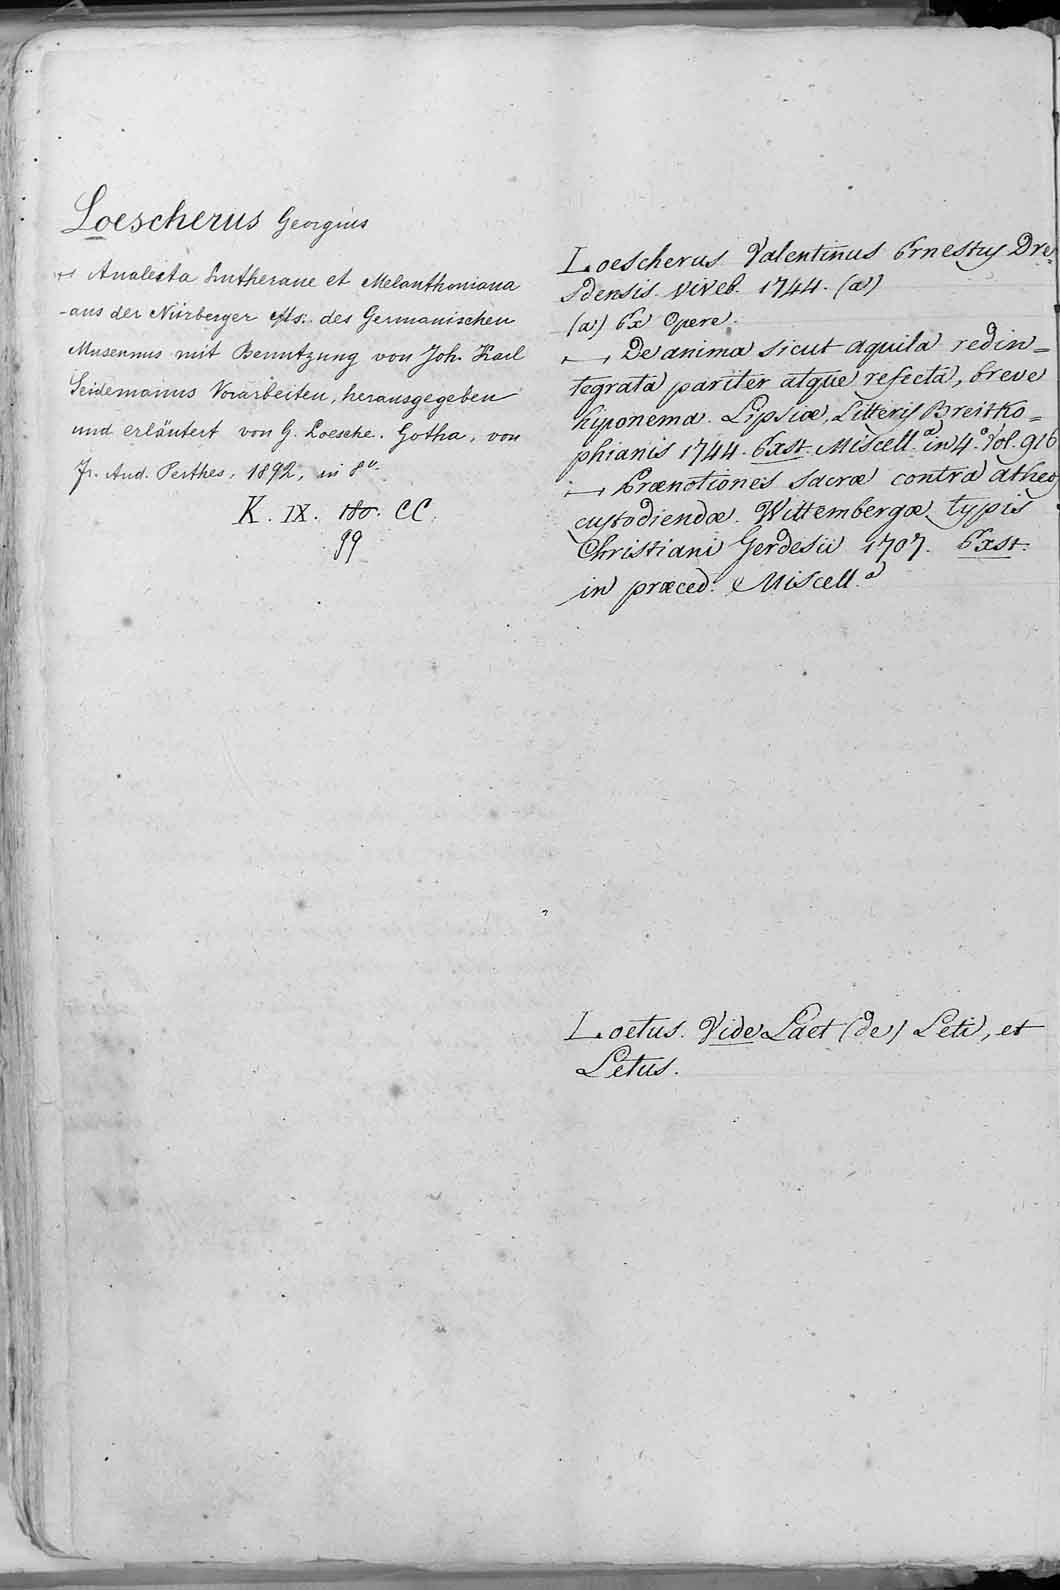 Loescherus Georgius
Analecta Lutherane et Melanthoniana
aus der Nürberger Hs. des Germanischen
Museums mit Benutzung von Joh. Karl
Seidemanns Vorarbeiten, herausgegeben
und erläutert von G. Loesche. Gotha, von
Fr. And. Perthes, 1892, in 8º.
K. IX. 180. CC.
99
Loescherus Valentinus Ernestus Dre-
sdensis viveb. 1744. (a)
(a) Ex Opere.
De anima sicut aquila redin=
tegrata pariter atque refecta, breve
hiponema. Lipsiæ, Litteris Breitko=
phianis 1744. Exst. Miscell.ª in 4.º Vol. 916
Prænotiones sacræ contra atheos
custodiendæ. Wittembergæ typis
Christiani Gerdesii 1707. Exst.
in præced. Miscell.ª
Loetus. Vide Laet (de) Leti, et
Letus.